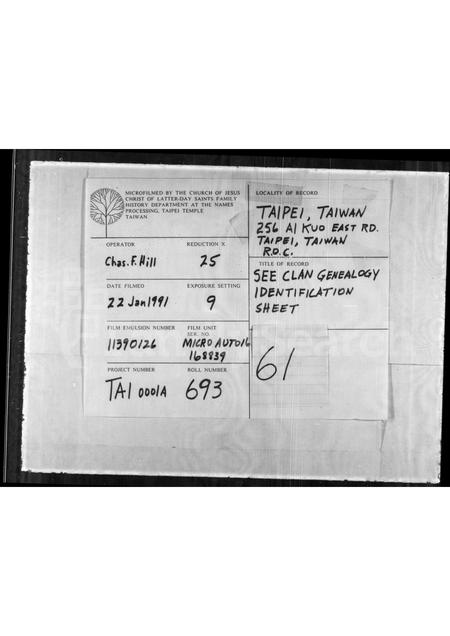 MICROFILMED BY THE CHURCH OF JESUS
CHRIST OF LATTER-DAY SAINTS FAMILY
HISTORY DEPARTMENT AT THE NAMES
PROCESSING, TAIPEI TEMPLE
TAIWAN
OPERATOR
REDUCTION X
Chas. F. Hill
25
DATE FILMED
EXPOSURE SETTING
22 Jan 1991
9
FILM EMULSION NUMBER
FILM UNIT
SER. NO.
11390126
MICRO AUTO16
168839
PROJECT NUMBER
ROLL NUMBER
TAI 0001A
693
LOCALITY OF RECORD
TAIPEI, TAIWAN
256 AI KUO EAST RD.
TAIPEI, TAIWAN
R.O.C.
TITLE OF RECORD
SEE CLAN GENEALOGY
IDENTIFICATION
SHEET
61